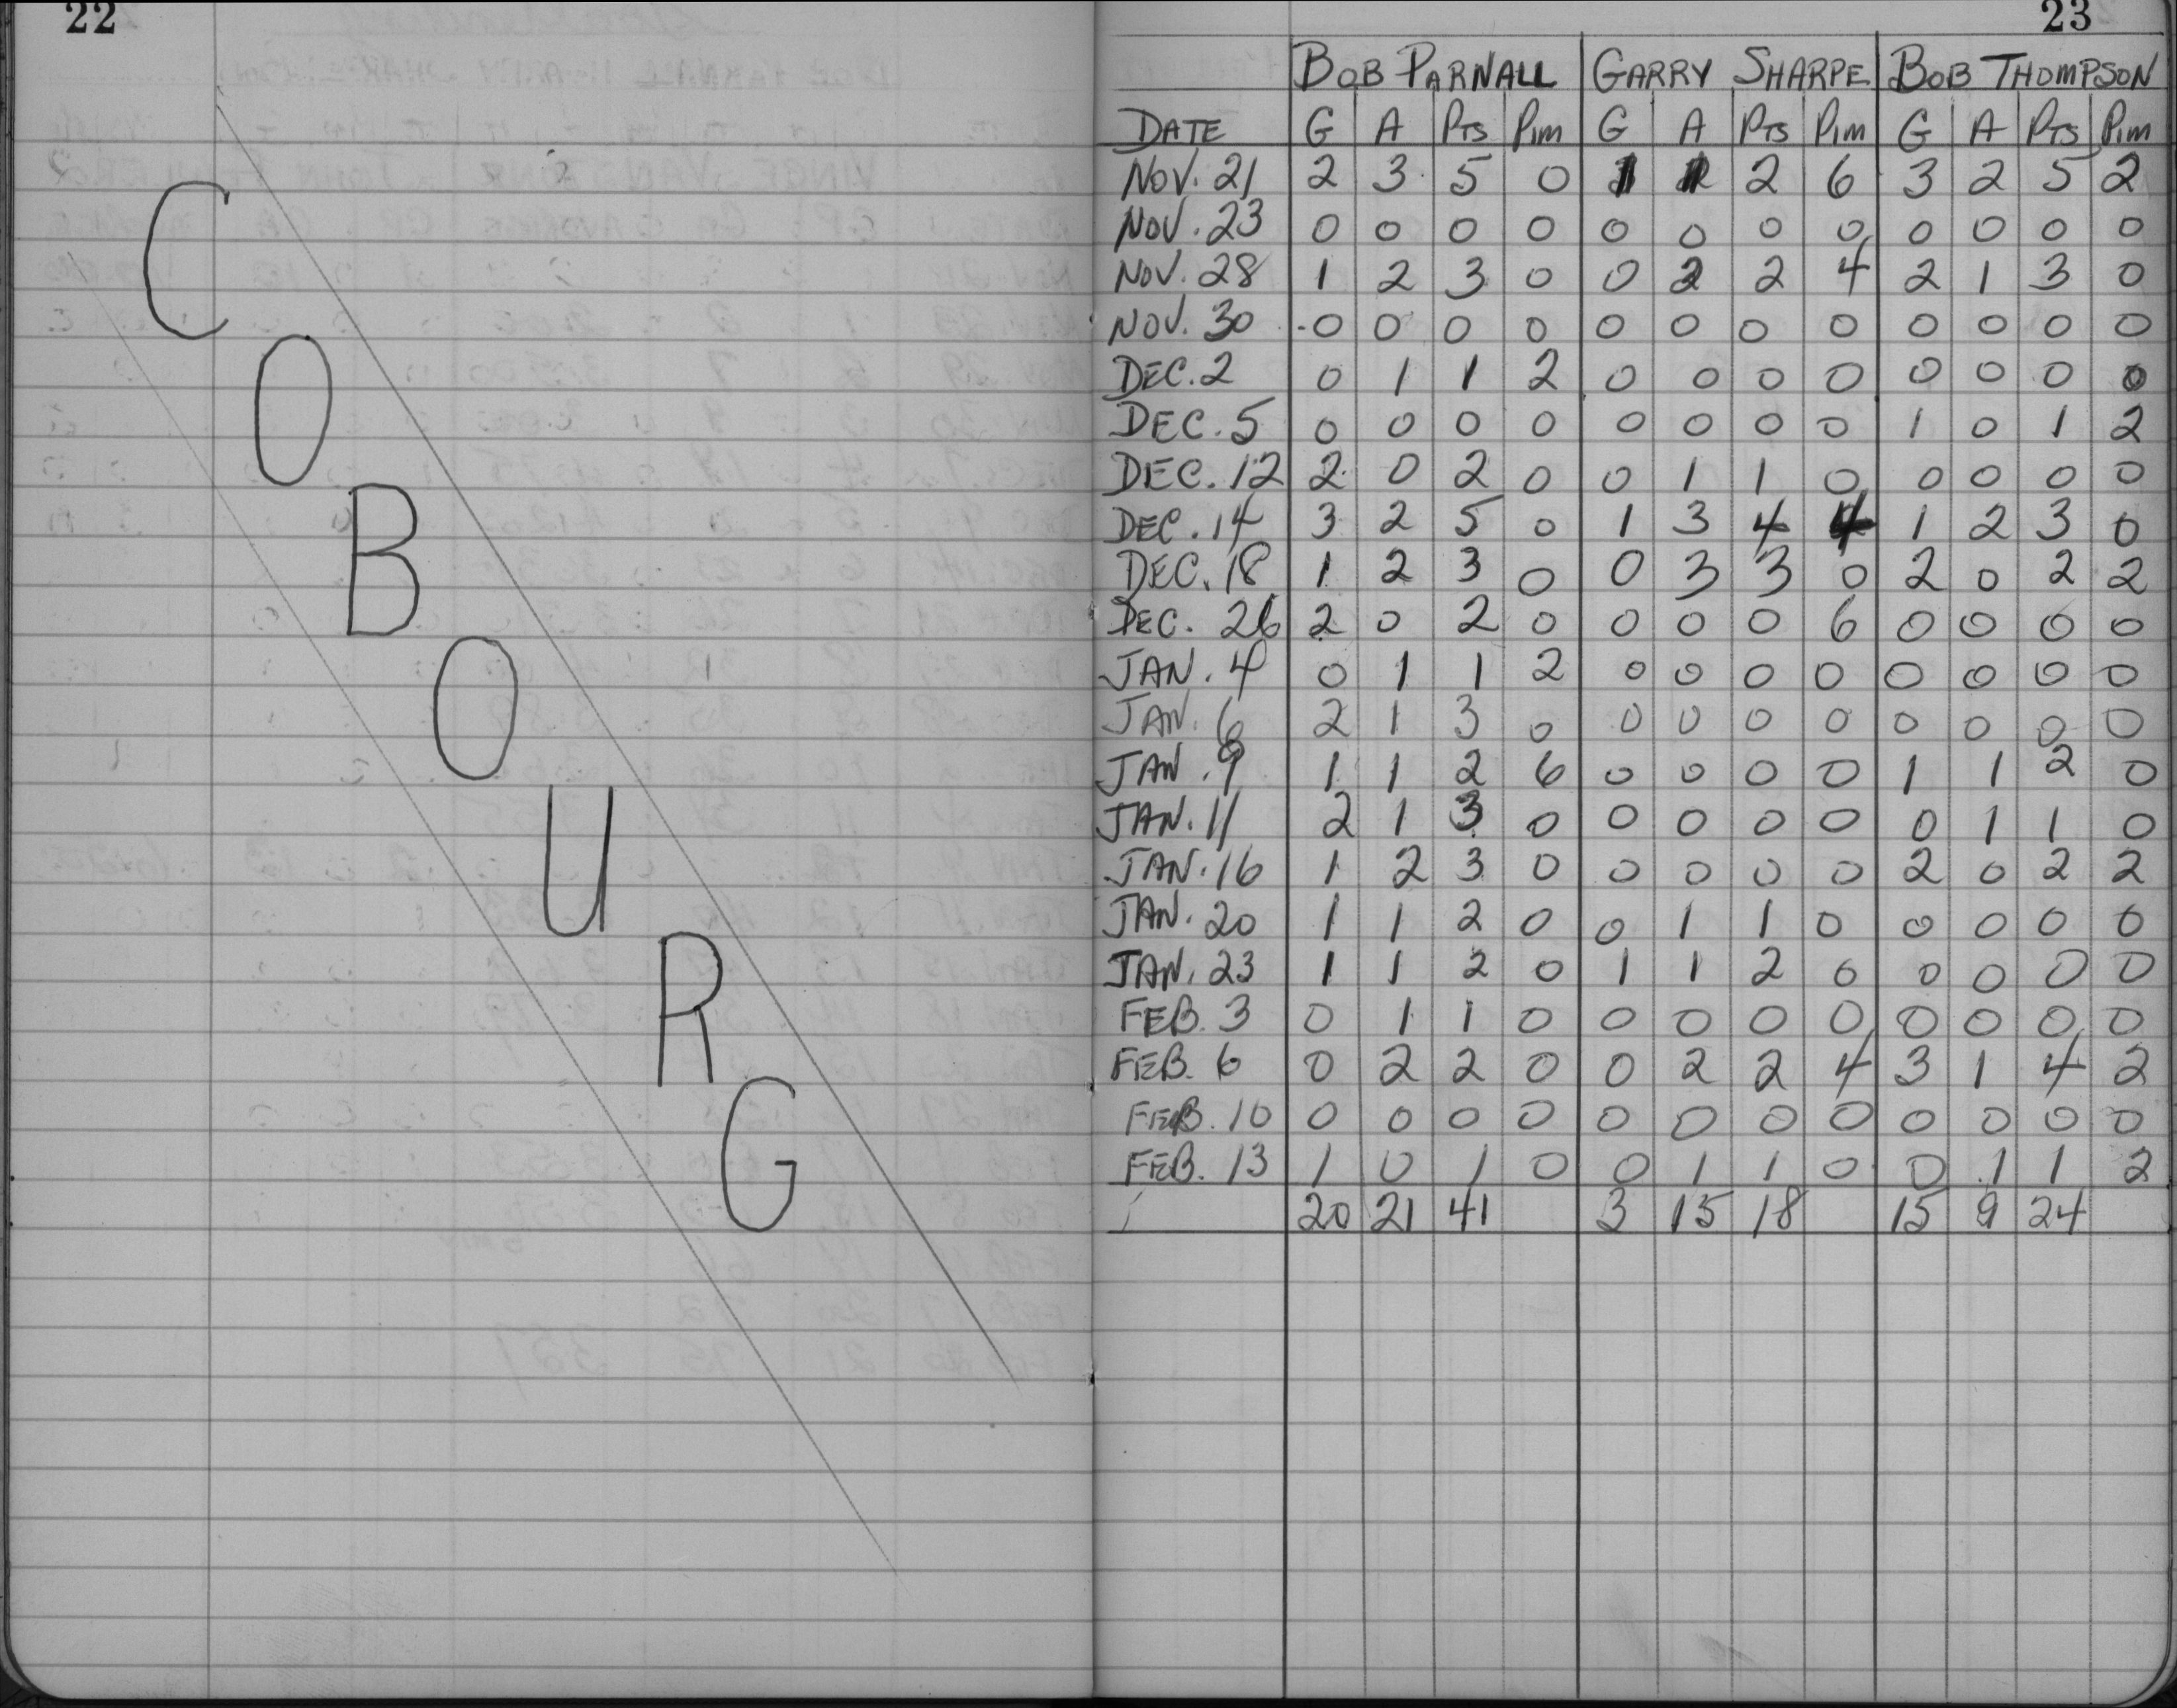 22
C
O
B
O
U
R
G
23
BOB PARNALL GARRY SHARPE BOB THOMPSON
DATE G A PTS PIM G A PTS PIM G A PTS PIM
NOV. 21 2 3 5 0 1 1 2 6 3 2 5 2
NOV. 23 0 0 0 0 0 0 0 0 0 0 0 0
NOV. 28 1 2 3 0 0 2 2 4 2 1 3 0
NOV. 30 0 0 0 0 0 0 0 0 0 0 0 0
DEC. 2 0 1 1 2 0 0 0 0 0 0 0 0
DEC. 5 0 0 0 0 0 0 0 0 1 0 1 2
DEC. 12 2 0 2 0 0 1 1 0 0 0 0 0
DEC. 14 3 2 5 0 1 3 4 4 1 2 3 0
DEC. 18 1 2 3 0 0 3 3 0 2 0 2 2
DEC. 26 2 0 2 0 0 0 0 6 0 0 0 0
JAN. 4 0 1 1 2 0 0 0 0 0 0 0 0
JAN. 6 2 1 3 0 0 0 0 0 0 0 0 0
JAN. 9 1 1 2 6 0 0 0 0 1 1 2 0
JAN. 11 2 1 3 0 0 0 0 0 0 1 1 0
JAN. 16 1 2 3 0 0 0 0 0 2 0 2 2
JAN. 20 1 1 2 0 0 1 1 0 0 0 0 0
JAN. 23 1 1 2 0 1 1 2 0 0 0 0 0
FEB. 3 0 1 1 0 0 0 0 0 0 0 0 0
FEB. 6 0 2 2 0 0 2 2 4 3 1 4 2
FEB. 10 0 0 0 0 0 0 0 0 0 0 0 0
FEB. 13 1 0 1 0 0 1 1 0 0 1 1 2
20 21 41 3 15 18 15 9 24